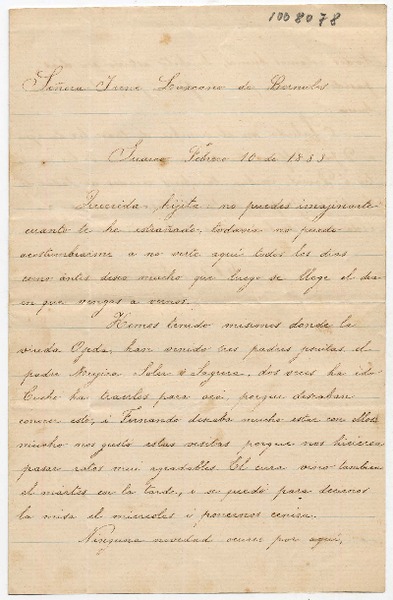 1008078
Señora Irene Lazcano de Bernales
Febrero 10 de 1883
Querida hijita no puedes imaginarte
cuanto te he estrañado, todavia no puedo
acostumbrarme a no verte aquí todos los dias
como ántes deseo mucho que luego se llege el dia
en que vengas a vernos.
Hemos tenido misiones donde la
viuda Ojeda, han venido tres padres jesuitas el
padre Solar i dos veces ha ido
ha traerlos para acá, porque deseaban
conocer esto, i Fernando deseaba mucho estar con ellos
mucho nos gustó estas vesitas porque nos hicieron
pasar ratos mui agradables. El cura vino tambien
el martes en la tarde, i se quedó para decirnos
la misa el miercoles i ponernos ceniza.
Ninguna novedad ocurre por aquí,